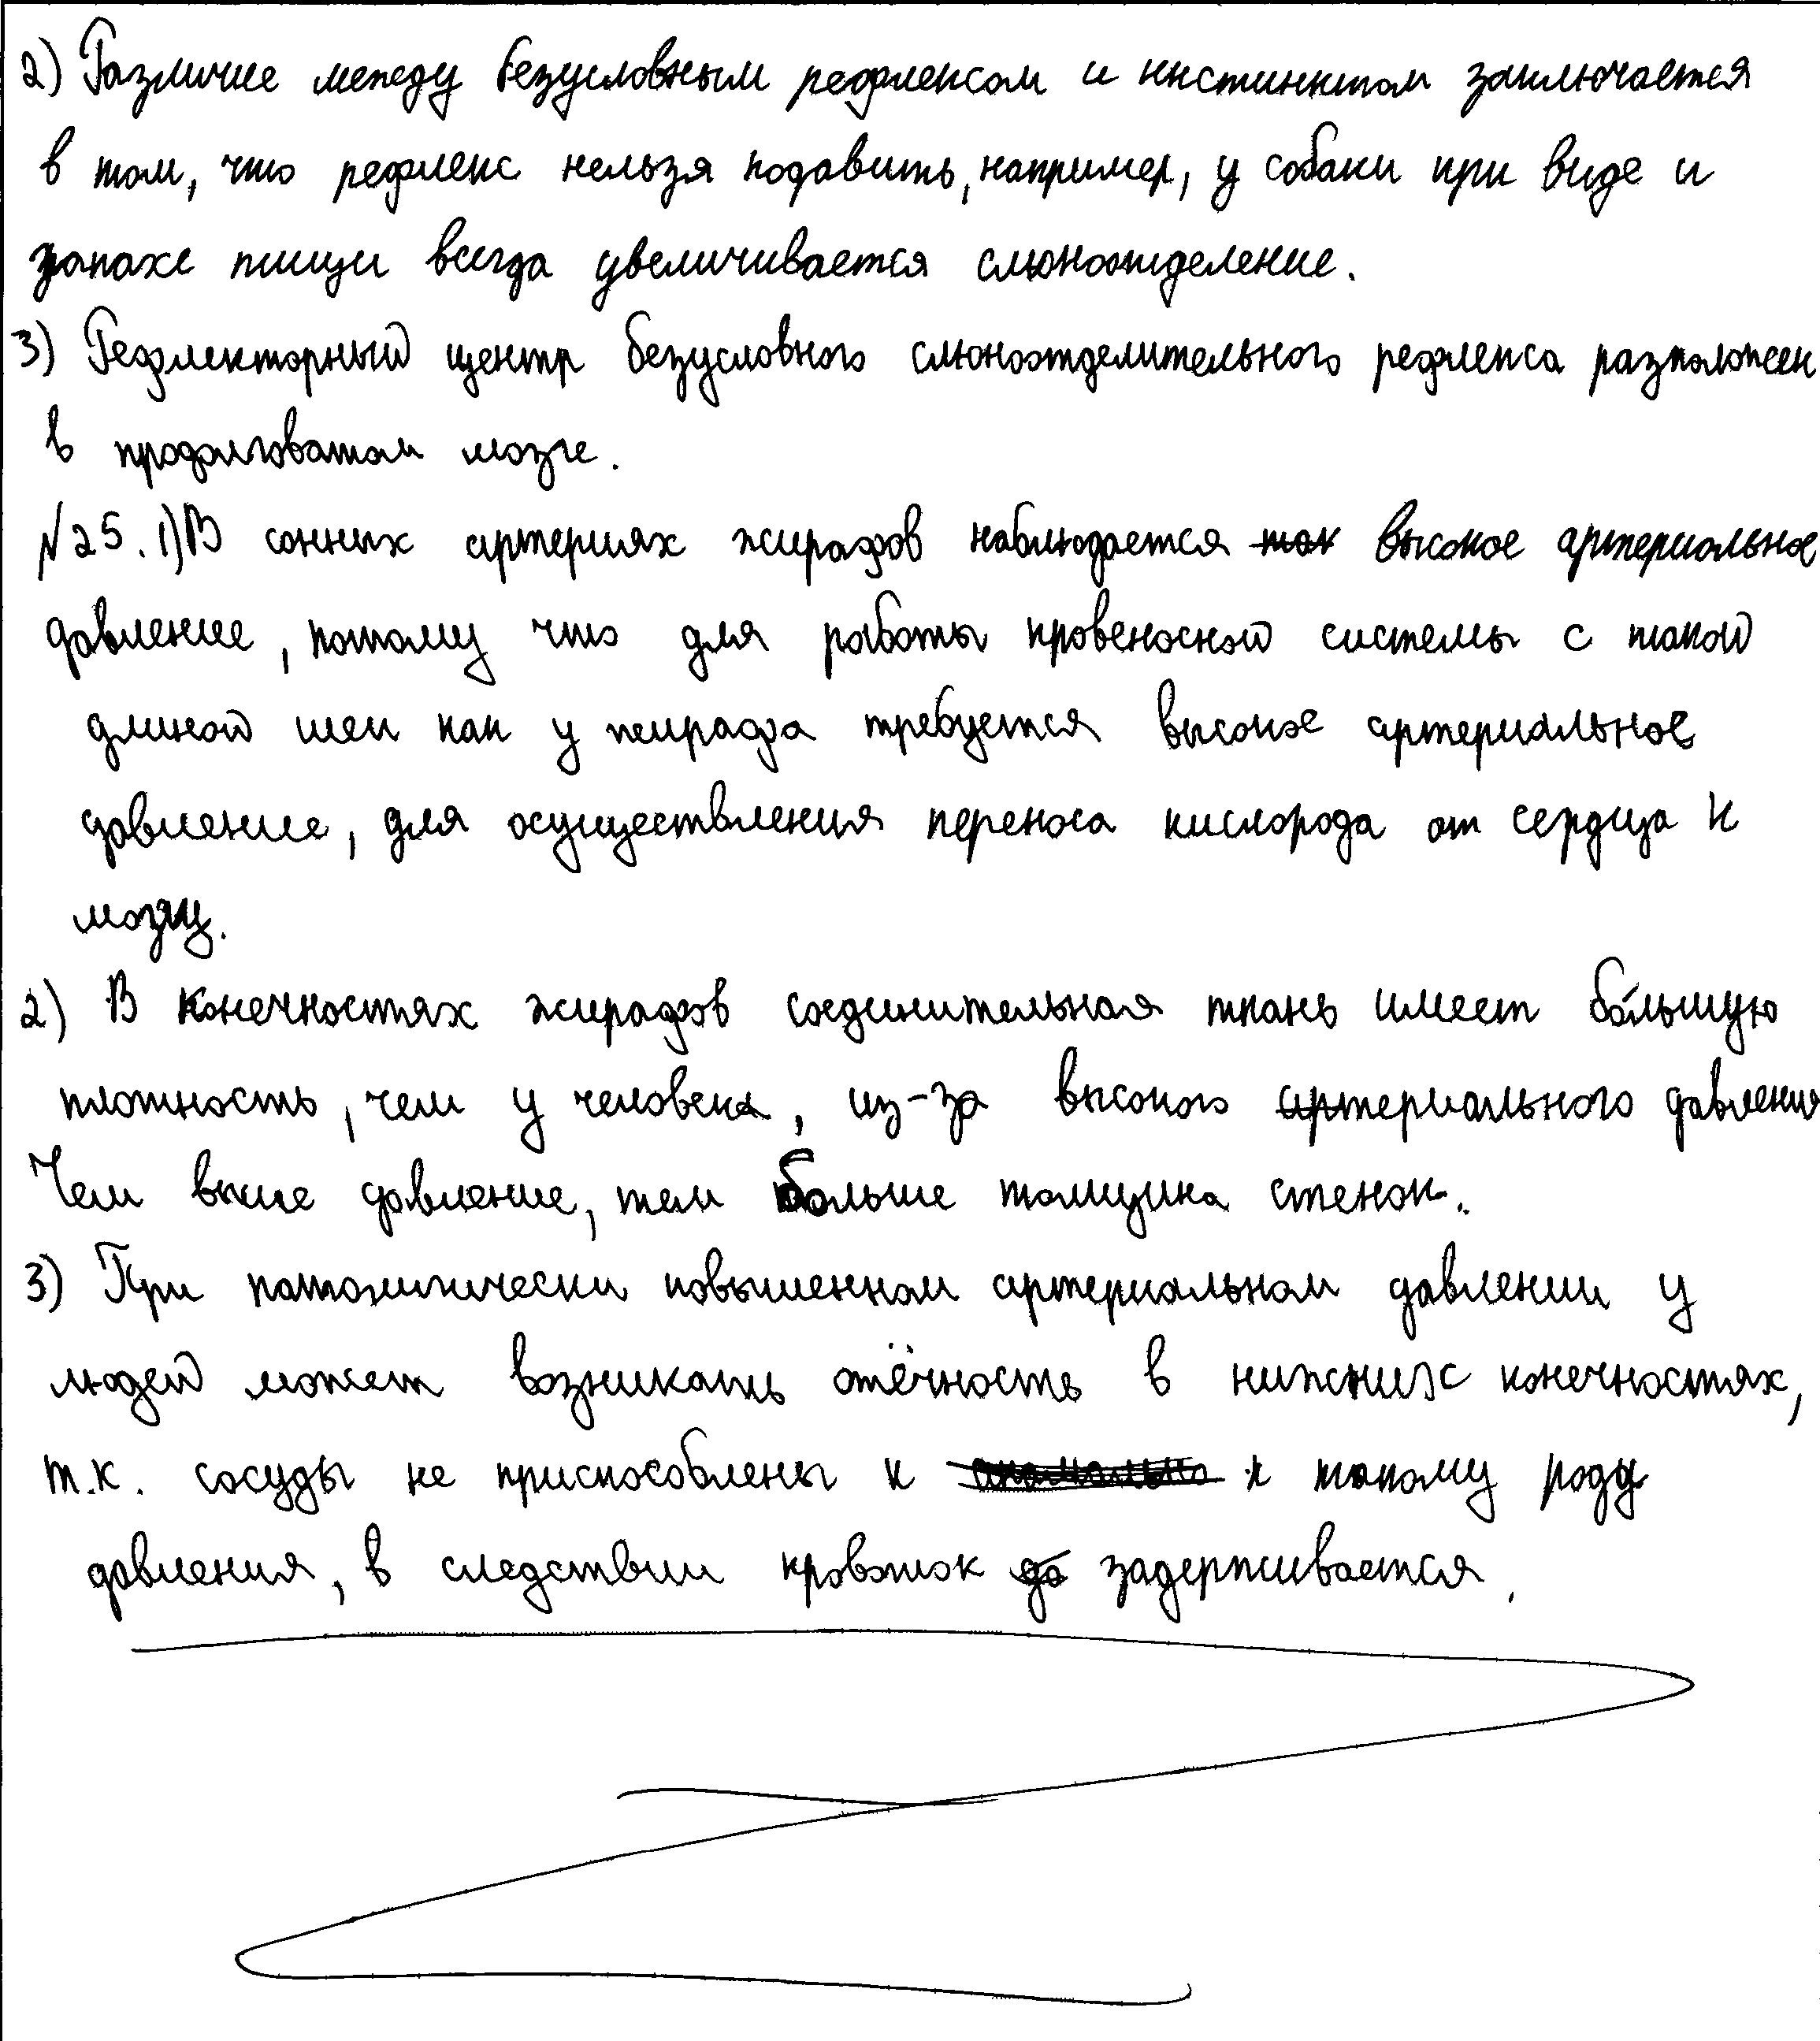 2) Различие между безусловным рефлексом и инстинктом заключается
в том, что рефлекс нельзя подавить, например, у собаки при виде и
запахе пищи всегда увеличивается слюноотделение.
3) Рефлекторный центр безусловного слюноотделительного рефлекса разположен
в продолговатом мозге.
№25. 1) В сонных артериях жирафов наблюдается ~~так~~ высокое артериальное
давление, потому что для работы кровеносной системы с такой
длиной шеи как у жирафа требуется высокое артериальное
давление, для осуществления переноса кислорода от сердца к
мозгу.
2) В конечностях жирафов соединительная ткань имеет бо́льшую
плотность, чем у человека, из-за высокого артериального давления
Чем выше давление, тем больше толщина стенок.
3) При патологически повышенном артериальном давлении у
людей может возникать отёчность в нижних конечностях,
т.к. сосуды не приспособлены к к такому роду
давления, в следствии кровоток ~~до~~ задерживается.